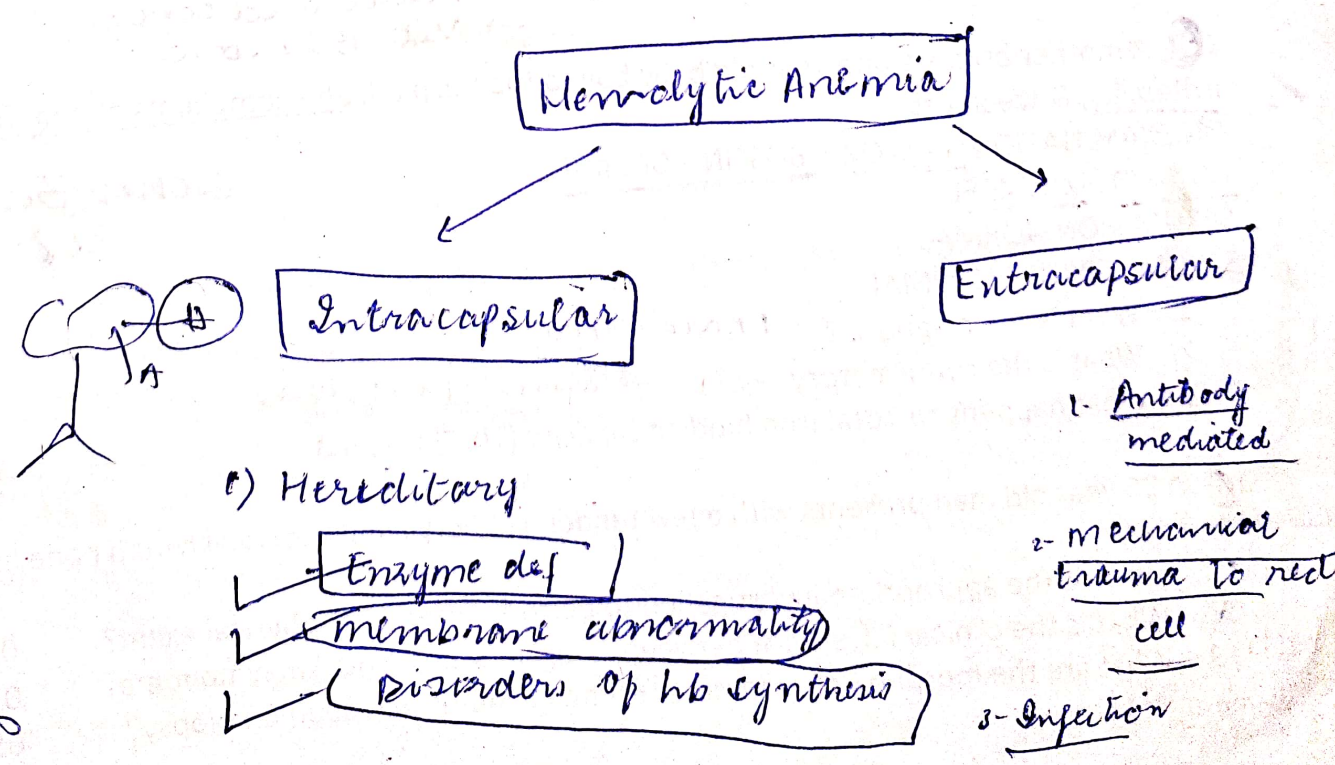 Hemolytic Anemia
Intracapsular
Extracapsular
A
1) Hereditary
- Enzyme def
membrane abnormality
Disorders of hb synthesis
1- Antibody
mediated
2- Mechanical
trauma to red
cell
3- Infection